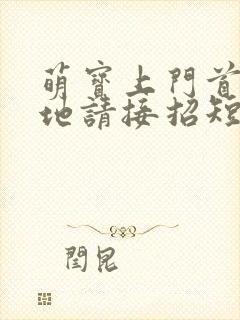 萌寶上門首
地請接招短
閆昆